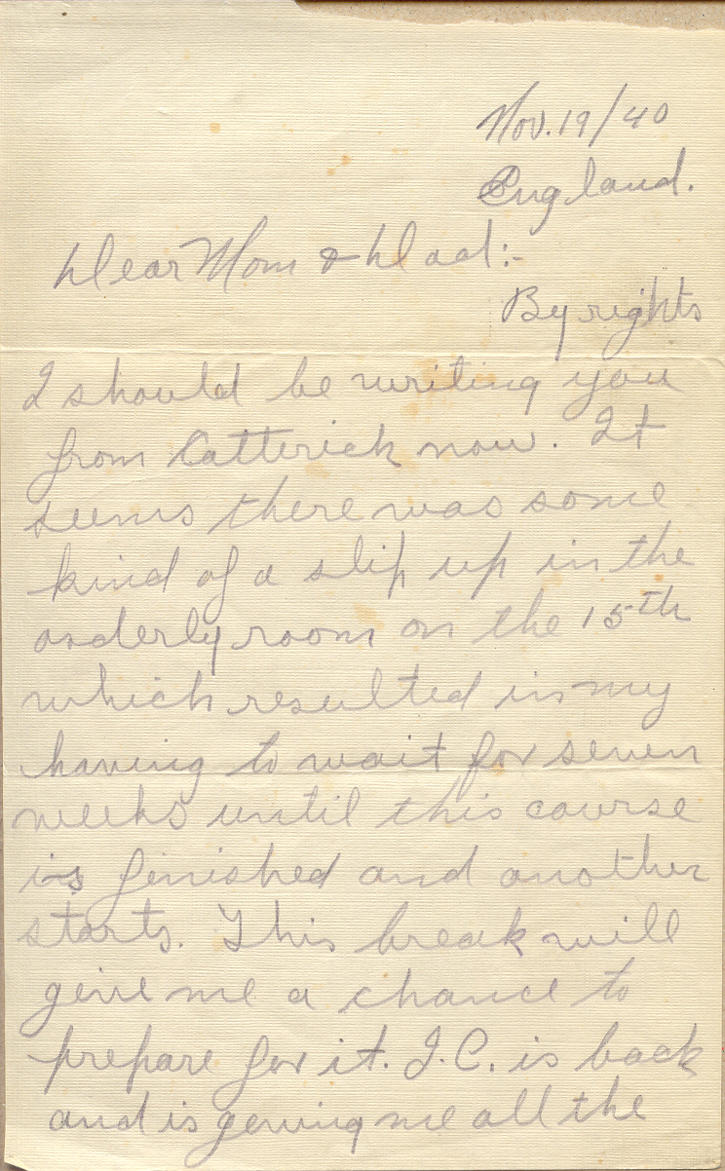 Nov. 19/40
England.
Dear Mom & Dad:-
By rights
I should be writing you
from Catterick now. It
seems there was some
kind of a slip up in the
orderly room on the 15th
which resulted in my
having to wait for seven
weeks until this course
is finished and another
starts. This break will
give me a chance to
prepare for it. J.C. is back
and is geving me all the